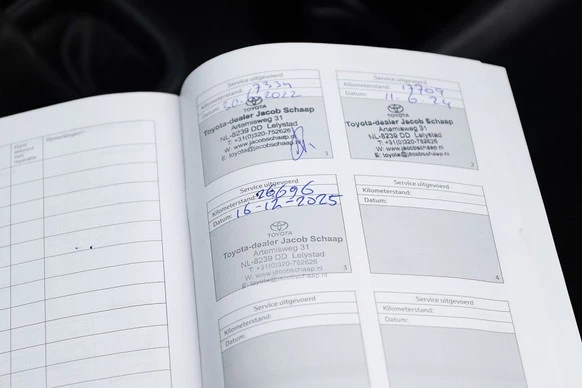 Opmerkingen
Service uitgevoerd
Kilometerstand: 7334
Datum: 2022
TOYOTA
Toyota-dealer Jacob Schaap
Artemisweg 31
NL-8239 DD Lelystad
T: +31(0)320-752626
W: www.jacobschaap.nl
E: toyota@jacobschaap.nl
1
Service uitgevoerd
Kilometerstand: 13709
Datum: 11-6-24
TOYOTA
Toyota-dealer Jacob Schaap
Artemisweg 31
NL-8239 DD Lelystad
T: +31(0)320-752626
W: www.jacobschaap.nl
E: toyota@jacobschaap.nl
2
Service uitgevoerd
Kilometerstand: 26696
Datum: 16-12-2025
TOYOTA
Toyota-dealer Jacob Schaap
Artemisweg 31
NL-8239 DD Lelystad
T: +31(0)320-752626
W: www.jacobschaap.nl
E: toyota@jacobschaap.nl
3
Service uitgevoerd
Kilometerstand:
Datum:
4
Service uitgevoerd
Kilometerstand:
Datum:
Service uitgevoerd
Kilometerstand:
Datum: